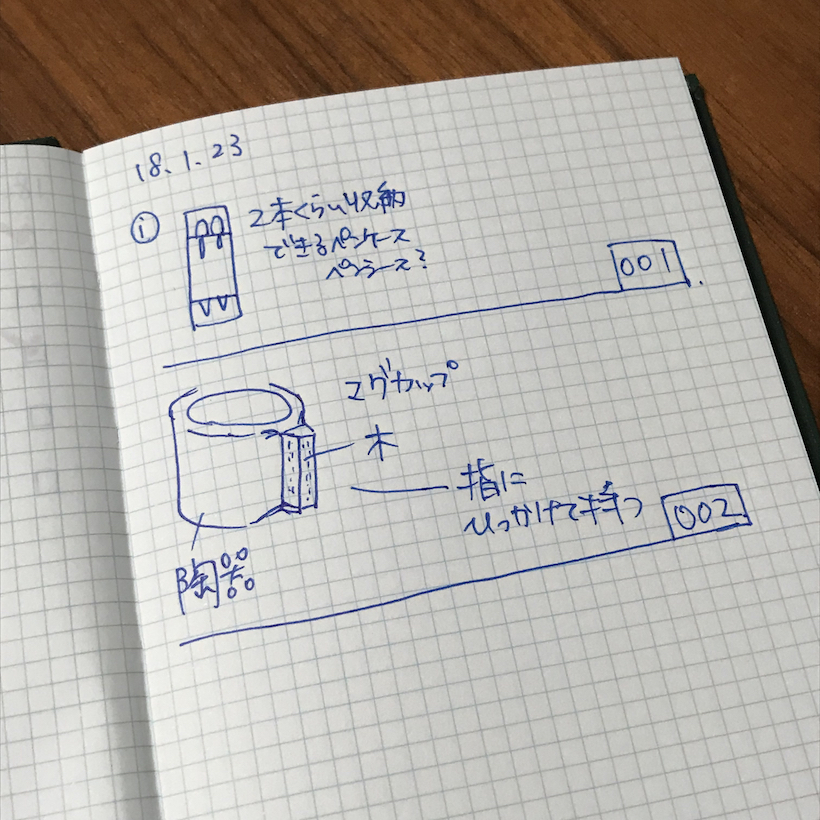 18.1.23
i
2本くらい収納
できるペンケース
ペンシース?
001
マグカップ
木
指に
ひっかけて持つ
002
陶器